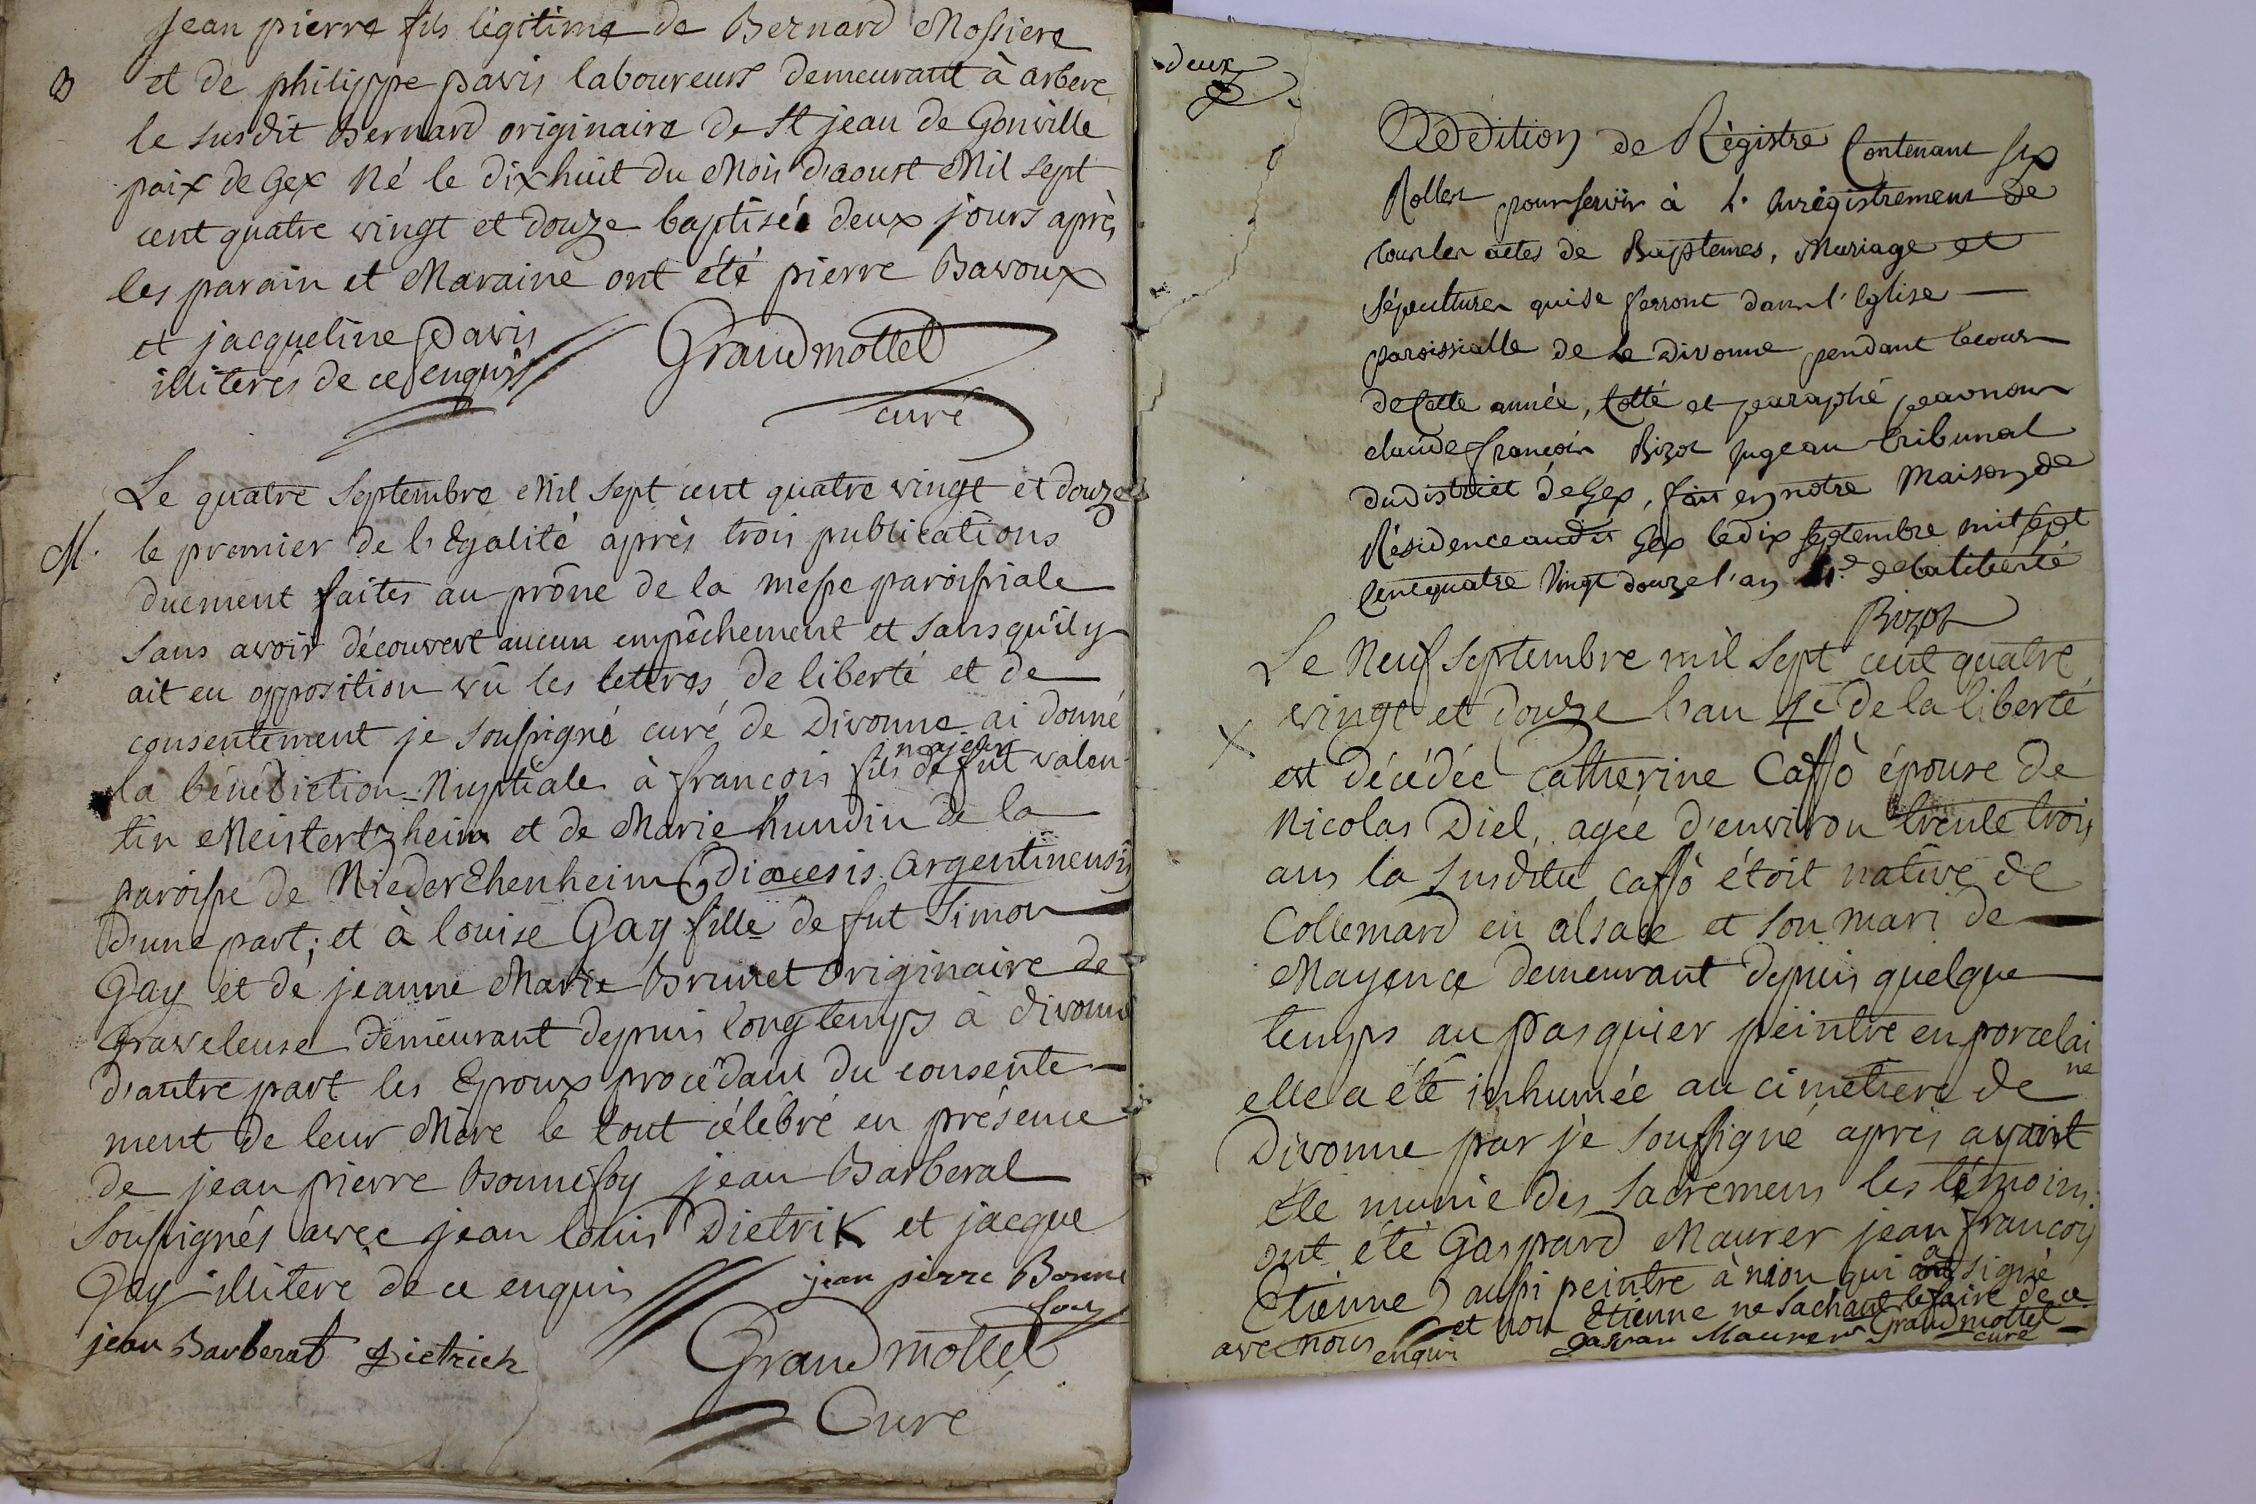 Jean pierre fils légitime de Bernard Mossiere
B et de philippe pavis laboureurs demeurant à arbere
le susdit Bernard originaire de St jean de Gonville
paix de Gex né le dixhuit du Mois d'aoust Mil sept
cent quatre vingt et douze baptisé deux jours après
les parain et Maraine ont été pierre Bavoux
et jacqueline Pavis
illiterés de ce enquis
Grandmottet
curé
Le quatre Septembre Mil Sept cent quatre vingt et douze
M. le premier de l'Egalité après trois publications
duement faites au prône de la messe paroissiale
sans avoir découvert aucun empêchement et sans qu'il y
ait eu opposition vû les lettres de liberté et de
consentement je soussigné curé de Divonne ai donné
la bénédiction Nuptiale à francois fils majeur de fut valen-
tin Meistertzheim et de Marie hundin de la
paroisse de Niederehenheim diœcesis argentinensis
d'une part; et à louise Gay fille de fut Simon
Gay et de jeanne Marie Brunet originaire de
Graveleuse demeurant depuis longtemps à divonne
d'autre part les Epoux procédant du consente-
ment de leur Mère le tout célébré en présence
de jean pierre bonnefoy jean Barberat
soussignés avec jean louis Dietrik et jacque
Gay illitere de ce enquis
jean pierre Bonne
foy
jean Barberat Dietrich
Grandmottet
Curé
deux
Addition de Régistre Contenant six
Rolles pour servir à l'anrégistrement de
tous les actes de Baptemes, Mariage et
Sépultures qui se ferront dans l'Eglise
paroissialle de Divonne pendant le cours
de Cette année, Cotté et paraphé par nous
claude françois Bizot juge au tribunal
du district de Gex, fait en notre Maison de
Résidence audit Gex le dix septembre mil sept
Cent quatre Vingt douze l'an 4.e de la liberté
Bizot
Le Neuf Septembre mil Sept cent quatre
vingt et douze l'an 4e de la liberté
X est décédée Catherine Caffô épouse de
Nicolas Diel, agée d'environ trente trois
ans la susditte Caffô étoit native de
Collemard en alsace et son mari de
Mayence demeurant depuis quelque
temps au pasquier peintre en porcelai
ne
elle a été inhumée au cimetiere de
Divonne par je soussigné après avoir
été munie des sacremens les témoins
ont été Gaspard Maurer jean francois
Etienne aussi peintre à nion qui a signé
avec nous et non Etienne ne sachant le faire de ce
enquis Gaspar Maurer Grandmottet
curé